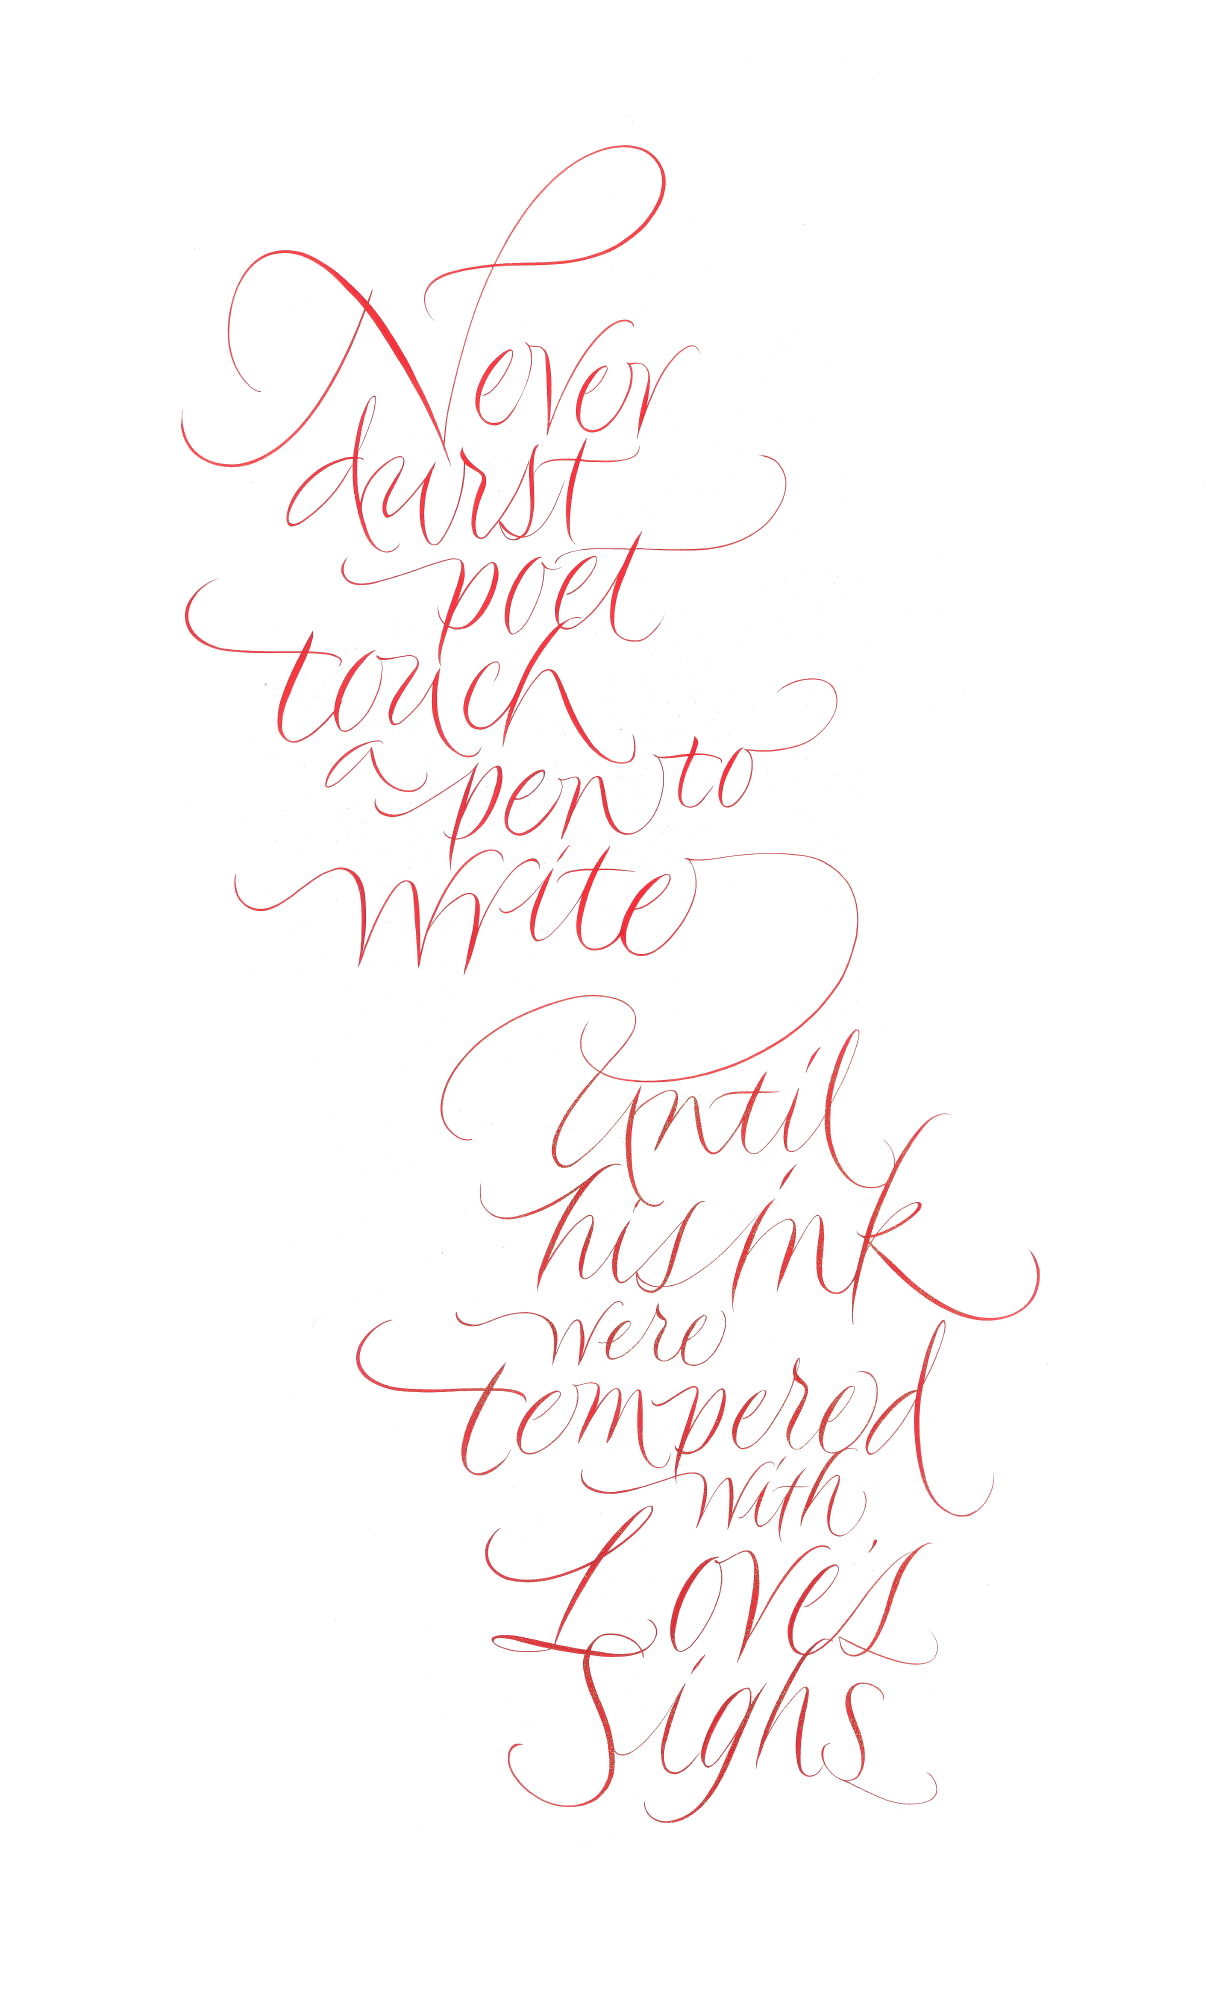 Never
durst
poet
touch
a pen to
write
Until
his ink
were
tempered
with
Love's
Sighs